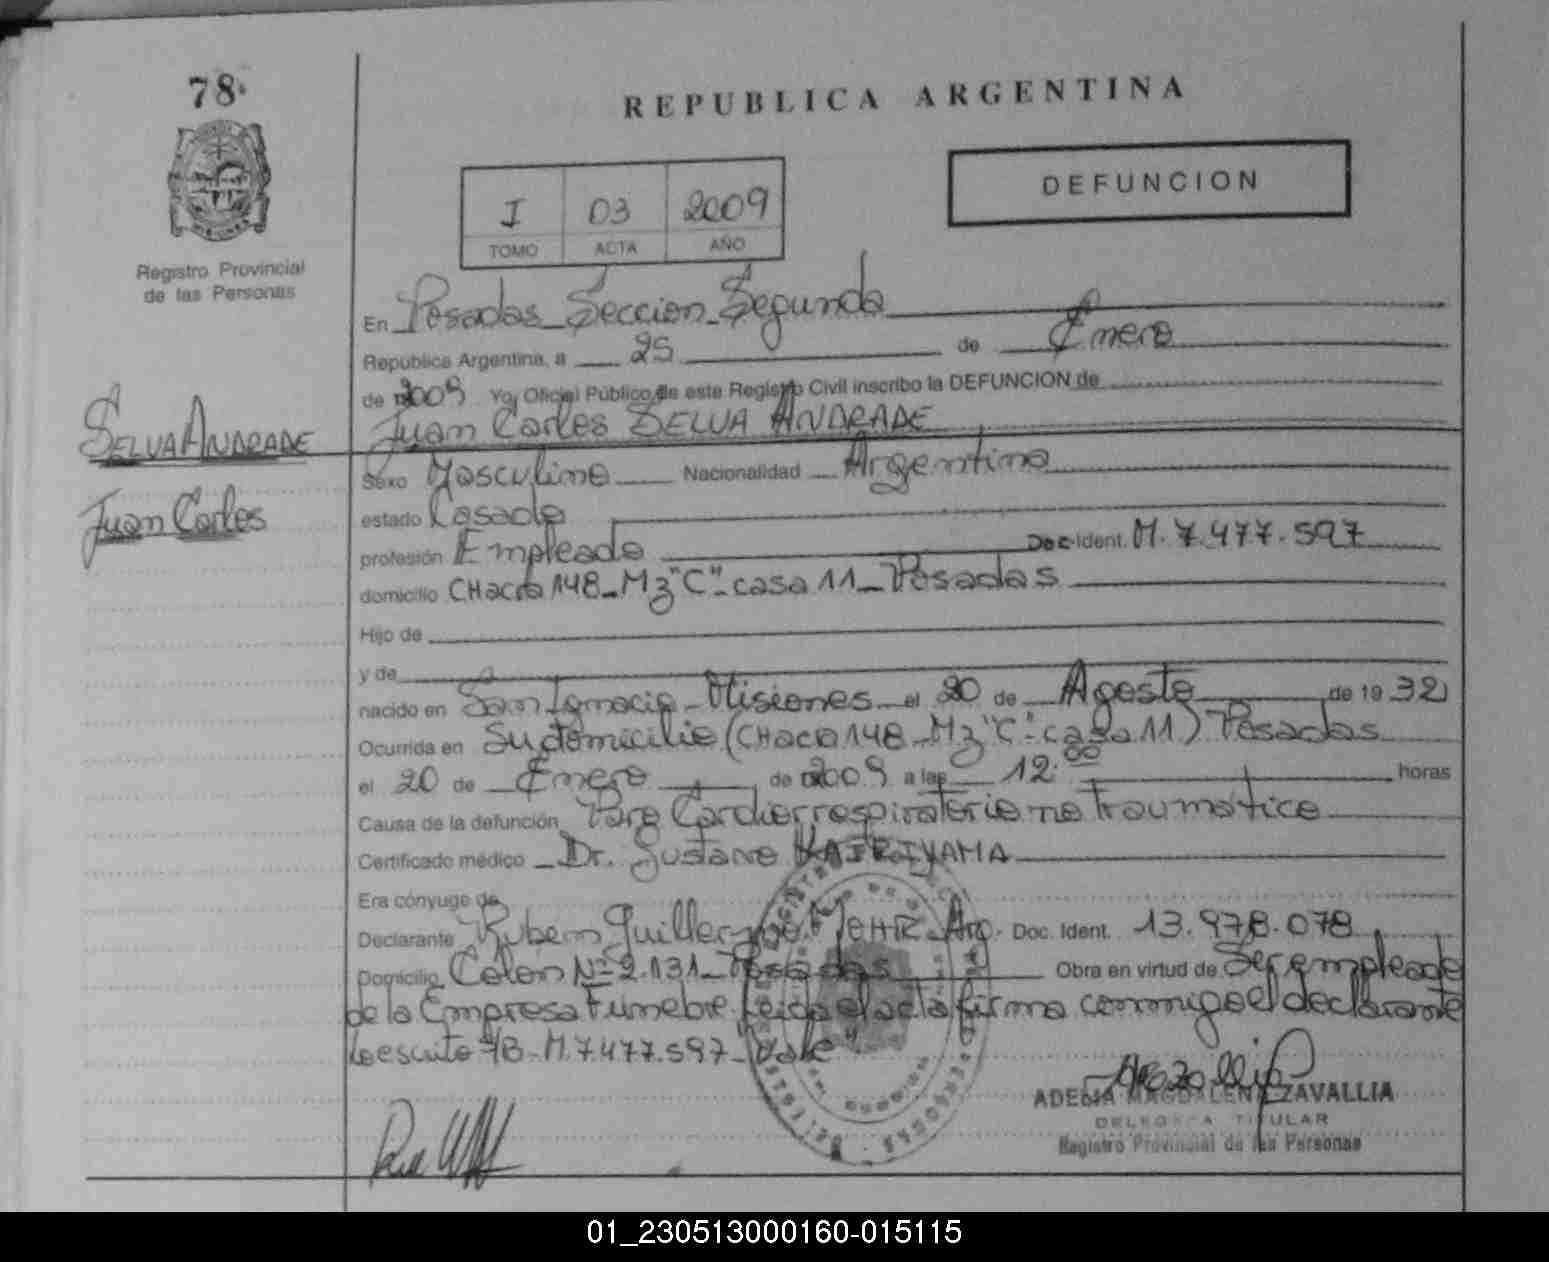 78
REPUBLICA ARGENTINA
DEFUNCION
I 03 2009
TOMO ACTA AÑO
Registro Provincial
de las Personas
En Posadas Seccion Segunda
República Argentina, a 25 de Enero
de 2009 Yo, Oficial Público de este Registro Civil inscribo la DEFUNCION de
SELVA ANDRADE
Juan Carlos SELVA ANDRADE
Sexo Masculino Nacionalidad Argentino
Juan Carlos
estado Casado
profesión Empleado Doc Ident. M. 7.477.597
domicilio CHacra 148_Mz "C"_casa 11_Posadas
Hijo de
y de
nacido en San Ignacio_Misiones el 20 de Agosto de 19 32
Ocurrida en Su domicilio (CHacra 148_Mz "C"_casa 11) Posadas
el 20 de Enero de 2009 a las 12:00 horas
Causa de la defunción Paro Cardiorrespiratorio no Traumático
Certificado médico Dr. Gustavo
Era cónyuge de
Declarante Ruben Guillermo Arg. Doc. Ident. 13.978.078
Domicilio Colon Nº 2.131_Posadas Obra en virtud de Ser empleado
de la Empresa Funebre. Leida el acta firma conmigo el declarante
M.7.477.597_Vale"
ADELIA MAGDALENA ZAVALLIA
DELEGADA TITULAR
Registro Provincial de las Personas
01_230513000160-015115